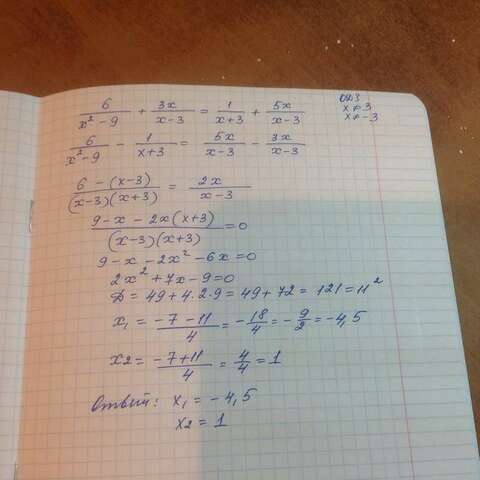 6/(x²-9) + 3x/(x-3) = 1/(x+3) + 5x/(x-3)
ОДЗ
x≠3
x≠-3
6/(x²-9) - 1/(x+3) = 5x/(x-3) - 3x/(x-3)
(6-(x-3))/((x-3)(x+3)) = 2x/(x-3)
(9-x-2x(x+3))/((x-3)(x+3)) = 0
9-x-2x²-6x=0
2x²+7x-9=0
D = 49+4·2·9 = 49+72 = 121 = 11²
x₁ = (-7-11)/4 = -18/4 = -9/2 = -4,5
x2 = (-7+11)/4 = 4/4 = 1
Ответ: x₁ = -4,5
x2 = 1